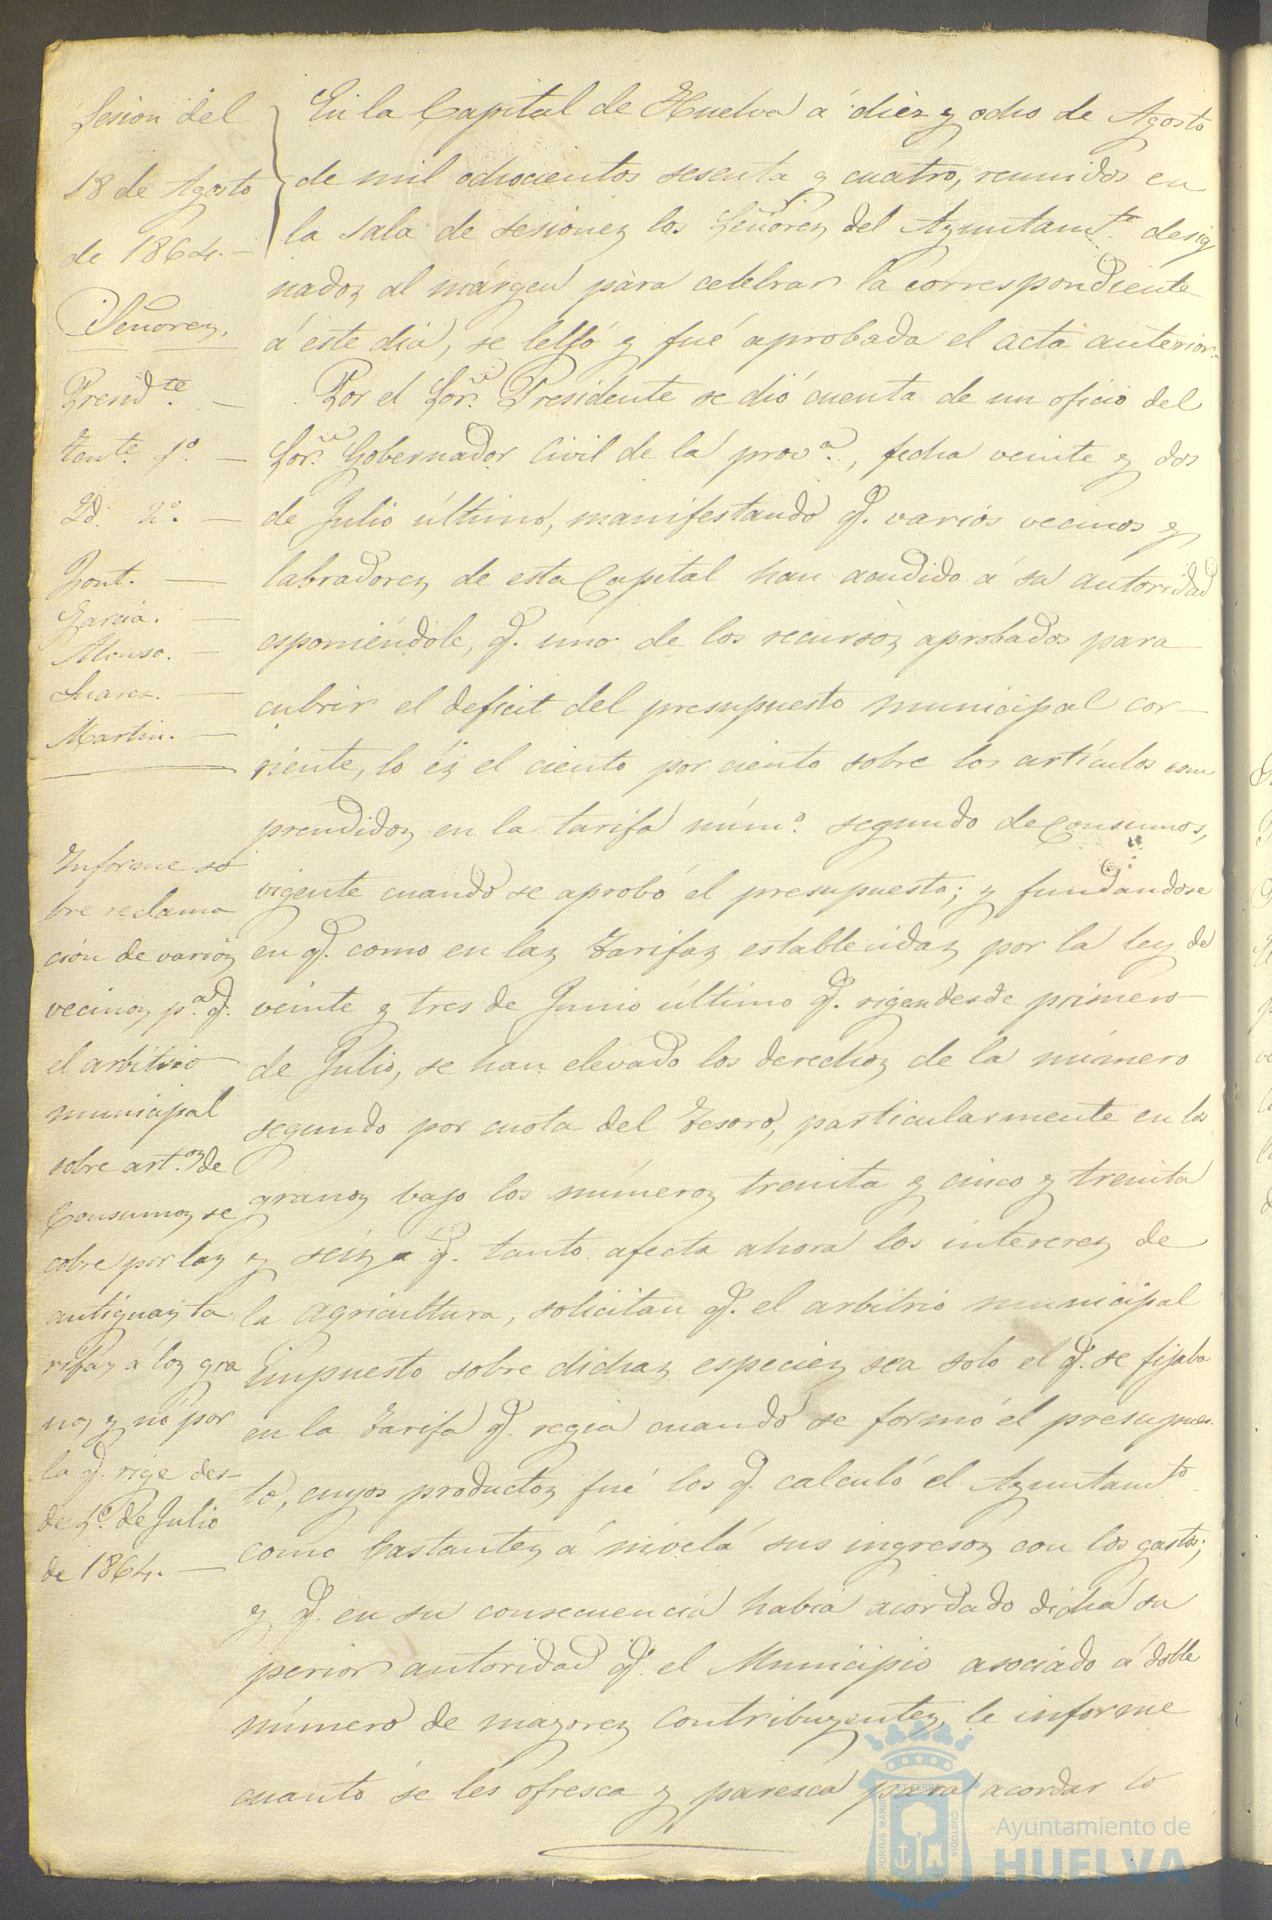 Sesion del
18 de Agosto
de 1864.
Señores,
Presid.te
Tent.e 1.º
Id. 2.º
Font.
Garcia.
Alonso.
Suarez.
Martin.
Informe so
bre reclama
ción de varios
vecinos p.a q.
el arbitrio
municipal
sobre art.os de
Consumos se
cobre por las
antiguas ta
rifas á los gra
nos y nó por
la q. rige des-
de 1.º de Julio
de 1864.
En la Capital de Huelva á diez y ocho de Agosto
de mil ochocientos sesenta y cuatro, reunidos en
la sala de sesiones los Señores del Ayuntam.to desig
nados al márgen para celebrar la correspondiente
á este dia, se lelló y fué aprobada el acta anterior.
Por el Sor. Presidente se dió cuenta de un oficio del
Sor. Gobernador Civil de la prov.a, fecha veinte y dos
de Julio último, manifestando q. varios vecinos y
labradores de esta Capital han acudido á su autoridad
esponiéndole, q. uno de los recursos aprobados para
cubrir el deficit del presupuesto municipal cor-
riente, lo és el ciento por ciento sobre los artículos com
prendidos en la tarifa núm.º segundo de Consumos,
vigente cuando se aprobó el presupuesto; y fundandose
en q. como en las tarifas establecidas por la ley de
veinte y tres de Junio último q. rigen desde primero
de Julio, se han elevado los derechos de la número
segundo por cuota del Tesoro, particularmente en los
granos bajo los números treinta y cinco y treinta
y seis, q. tanto afecta ahora los intereses de
la agricultura, solicitan q. el arbitrio municipal
impuesto sobre dichas especies sea solo el q. se fijaba
en la tarifa q. regia cuando se formó el presupues
to, cuyos productos fué los q. calculó el Ayuntam.to
como bastantes á nivelá sus ingresos con los gastos;
y q. en su consecuencia habia acordado dicha su
perior autoridad q. el Municipio asociado á doble
número de mayores contribuyentes, le informe
cuanto se les ofresca y paresca para acordar lo
Ayuntamiento de
HUELVA